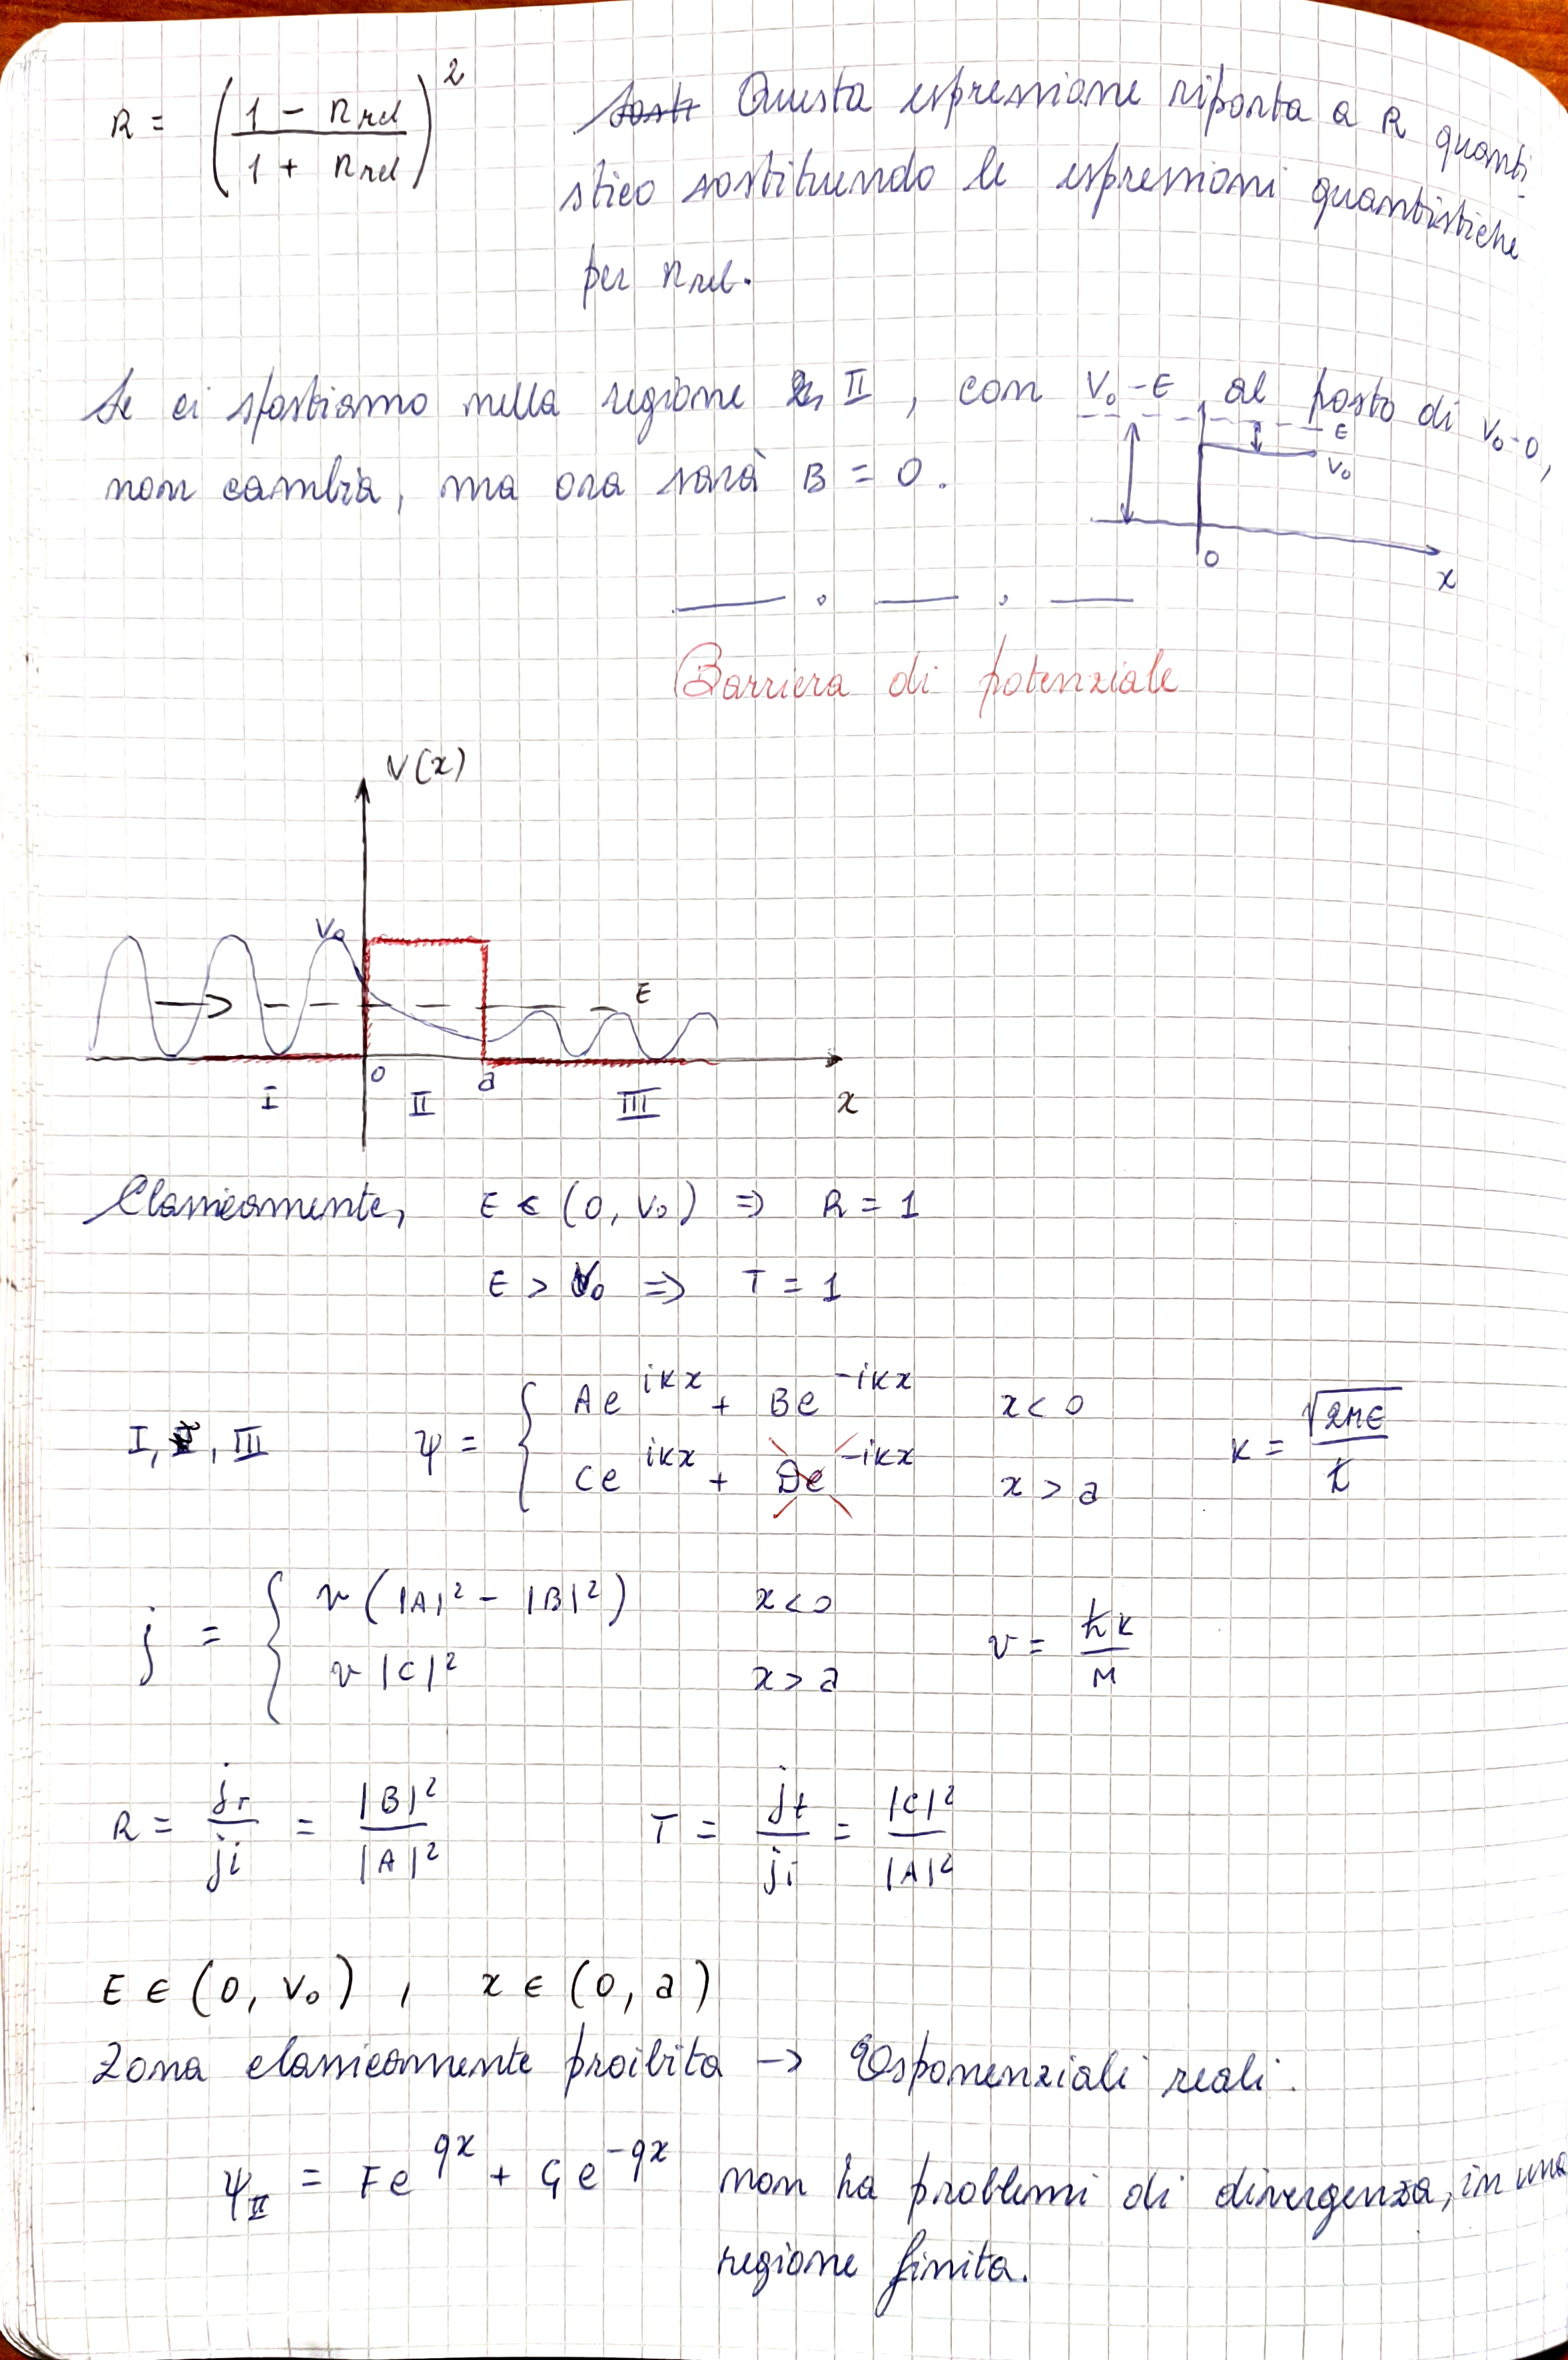 R = ( (1 - n rel) / (1 + n rel) )² Questa espressione riporta a R quanti-
stico sostituendo le espressioni quantistiche
per n rel.
Se ci spostiamo nella regione II, con V₀-E al posto di V₀-0,
non cambia, ma ora sarà B = 0.
E
V₀
0
x
Barriera di potenziale
V(x)
V₀
E
0 a
I II III x
Classicamente, E ∈ (0, V₀) ⇒ R = 1
E > V₀ ⇒ T = 1
I, III ψ = { Ae^{ikx} + Be^{-ikx} x < 0 k = √(2ME) / ħ
Ce^{ikx} + De^{-ikx} x > a
j = { v (|A|² - |B|²) x < 0 v = ħk / M
v |C|² x > a
R = jr / ji = |B|² / |A|² T = jt / ji = |C|² / |A|²
E ∈ (0, V₀) , x ∈ (0, a)
Zona classicamente proibita → Esponenziali reali.
ψ_II = Fe^{qx} + Ge^{-qx} non ha problemi di divergenza, in una
regione finita.